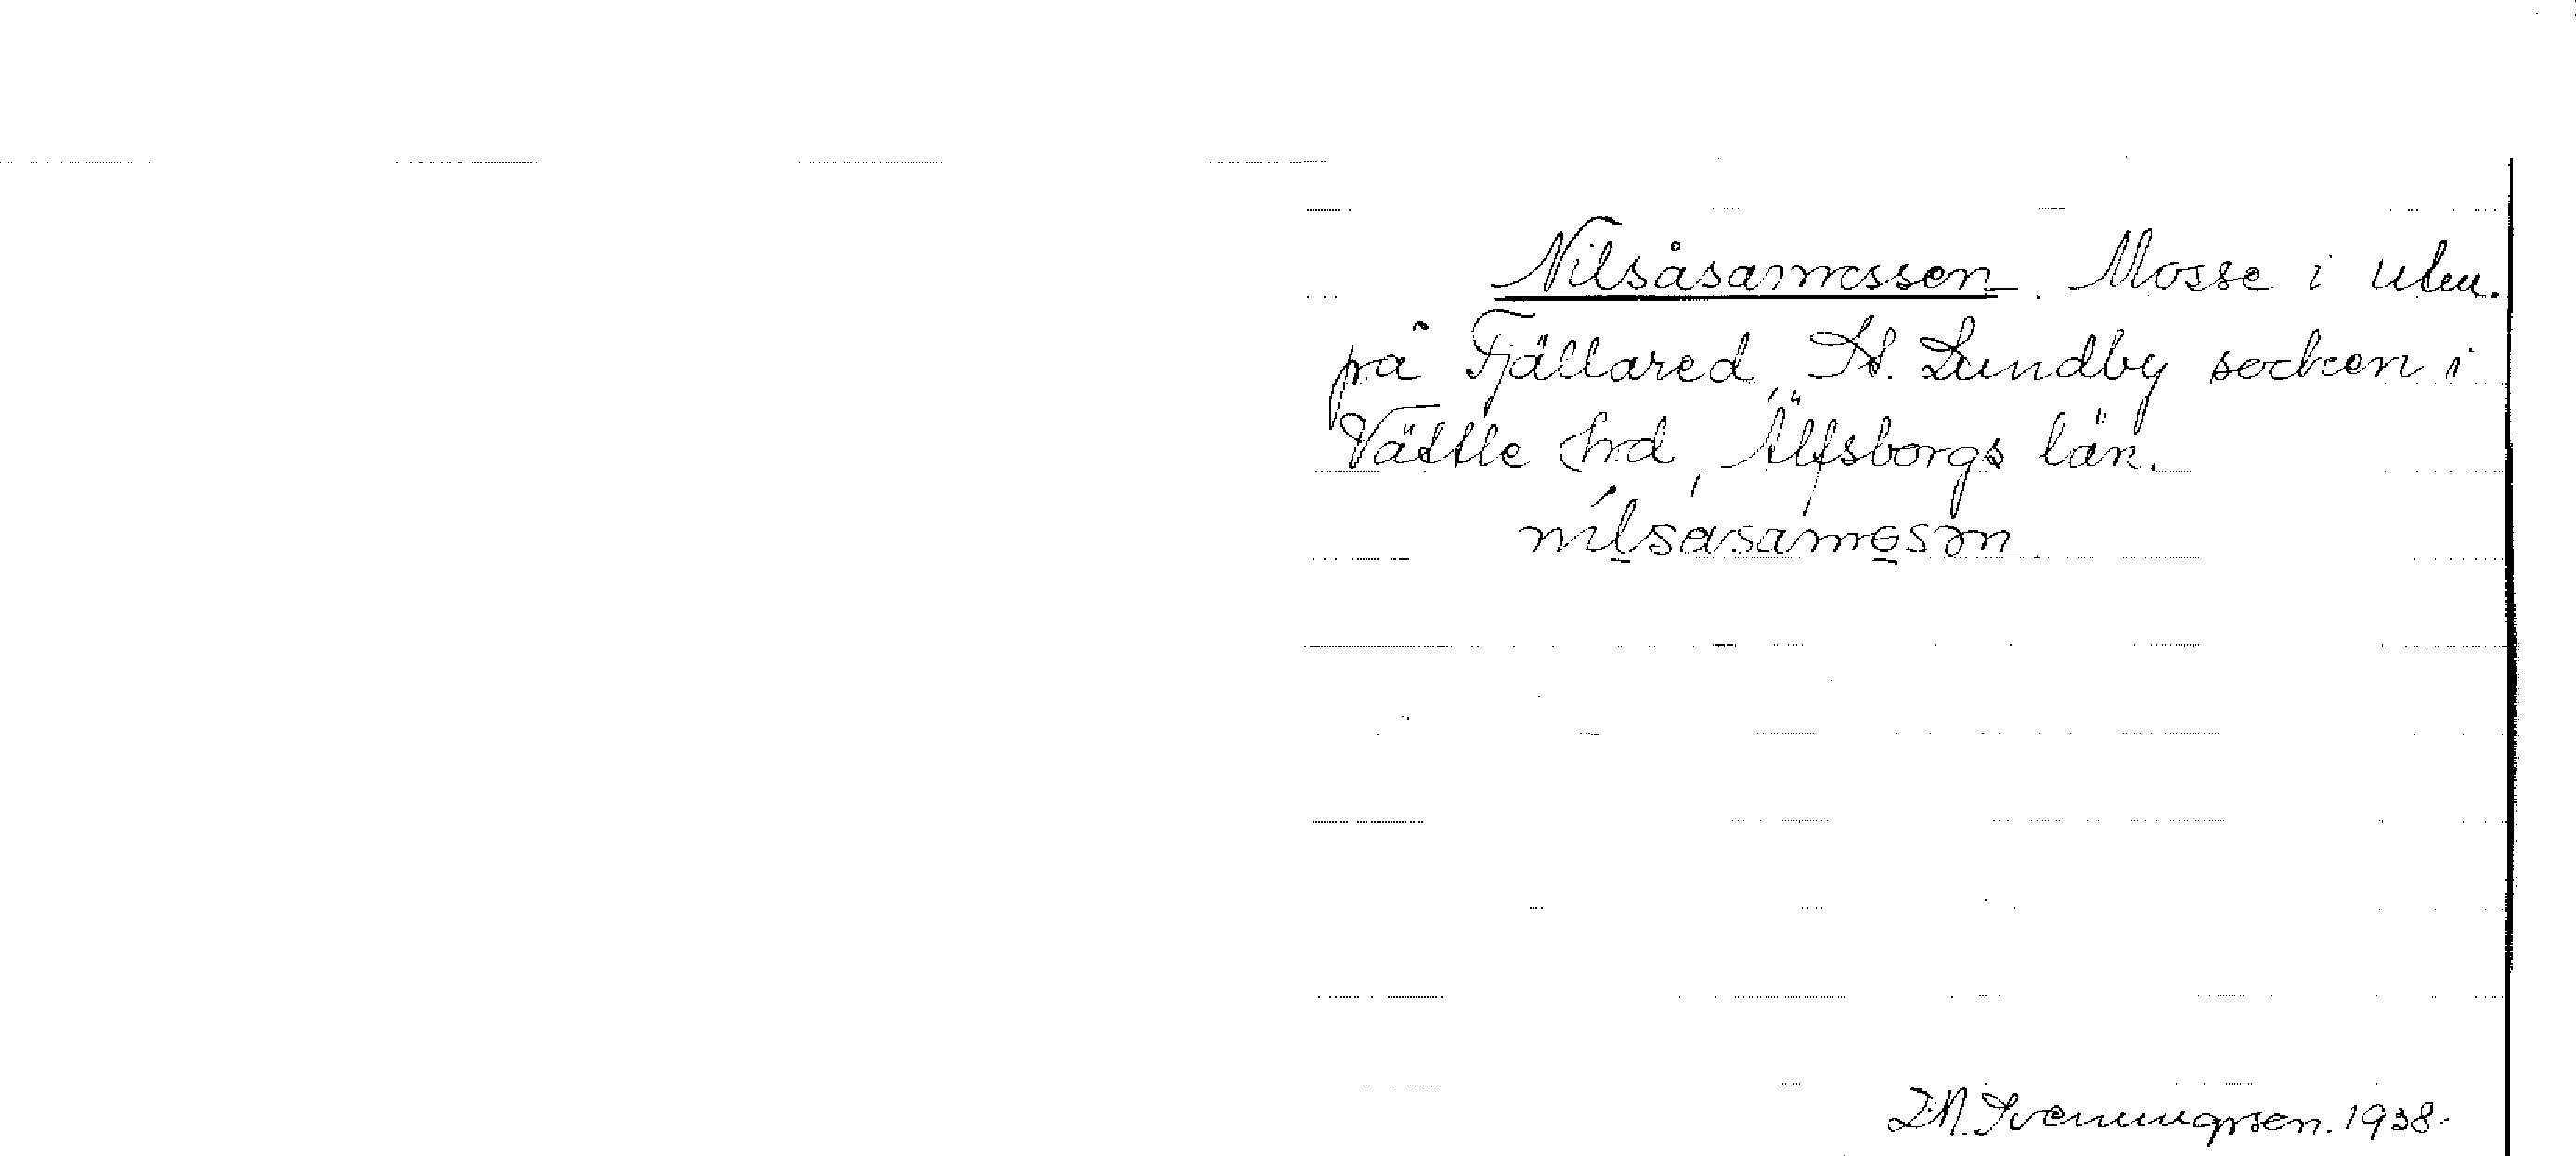 Nilsåsamossen. Mosse i utm.
på Fjällared, St. Lundby socken i
Vättle hrd, Älfsborgs län.
nilsasamosən
D.N. Sveningsson. 1938.